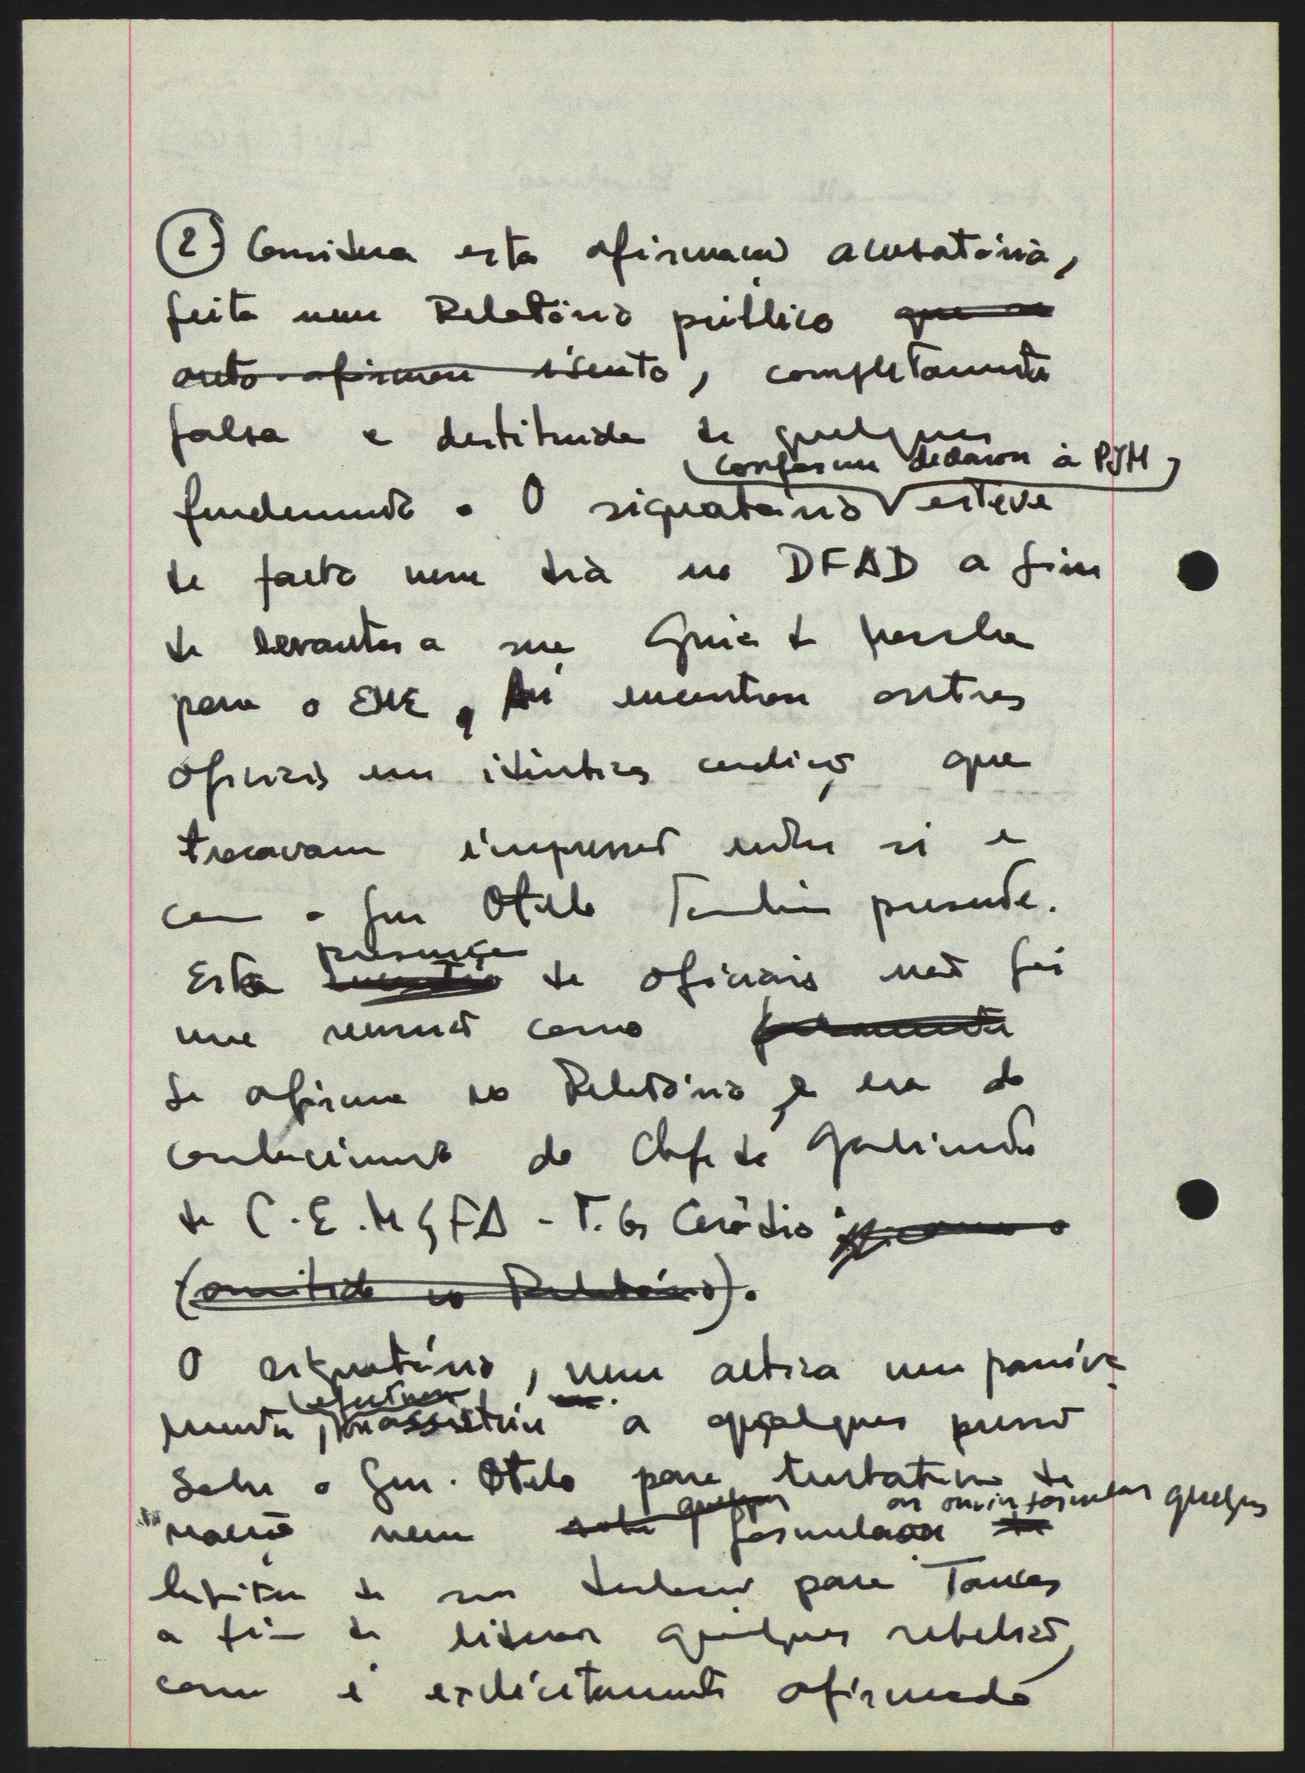 2) Considera esta afirmação acusatória,
feita num Relatório público que se
auto-afirmou isento, completamente
falsa e destituida de qualquer
(conforme declarou à PJM)
fundamento. O signatário esteve
de facto nesse dia no DFAD a fim
de levantar a sua Guia de marcha
para o EME, Aí encontrou outros
oficiais em idênticas condições que
trocavam impressões entre si e
com o Gen Otelo também presente.
presença
Esta de oficiais não foi
uma reunião como
se afirma no Relatório, e era do
conhecimento do Chefe de Gabinete
do C.E.M.G.FA - T. Cerã dio como o
(omitido no Relatório).
O signatário, nem activa nem passiva
efectuou
mente, ou assistiu a qualquer pressão
sobre o Gen. Otelo para tentativa de
qualquer ou ouviu formular qualquer
nem formulou
de sua para Tancos
a fim de liderar qualquer rebelião,
como é explicitamente afirmado